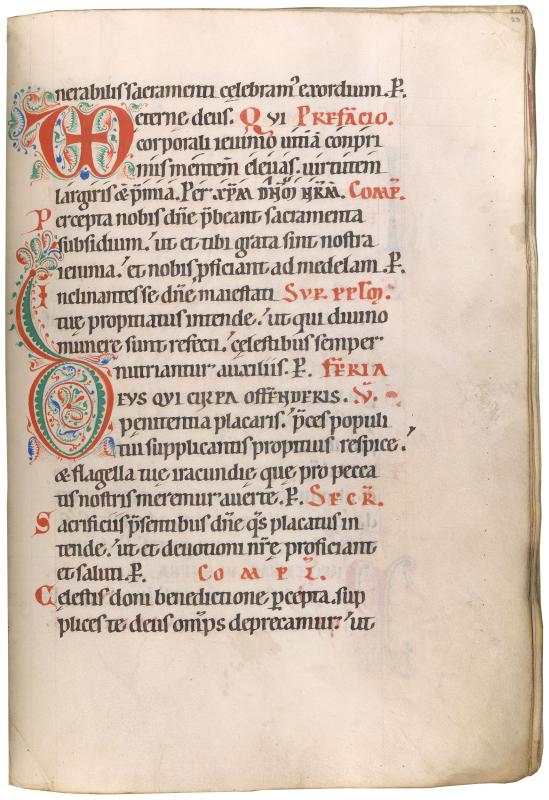 nerabilis sacramenti celebramꝰ exordium. P̲.
eterne deus. QVI PREFACIO.
corporali ieiunio uitia conpri
mis mentem eleuas. uirtutem
largiris & p̄mia. Per xp̄m COMP̄.
Percepta nobis dn̄e p̄beant sacramenta
subsidium. ut et tibi grata sint nostra
ieiunia. et nobis ꝓficiant ad medelam. P̲.
Inclinantes se dn̄e maiestati SVP.
tuę propitiatus intende. ut qui diuino
munere sunt refecti. cęlestibus semper
nutriantur auxiliis. P̲. FERIA
EVS QVI CVLPA OFFENDERIS. V.
penitentia placaris. p̄ces populi
tui supplicantis propitius respice.
& flagella tuę iracundię que pro pecca
tis nostris meremur auerte. P̲. SECR̄.
Sacrificiis p̄sentibus dn̄e qs̄ placatus in
tende. ut et deuotioni nr̄ę proficiant
et saluti. P̲. COMPL̄.
Cęlestis doni benedictione ꝑcepta. sup
plices te deus om̄ps deprecamur. ut